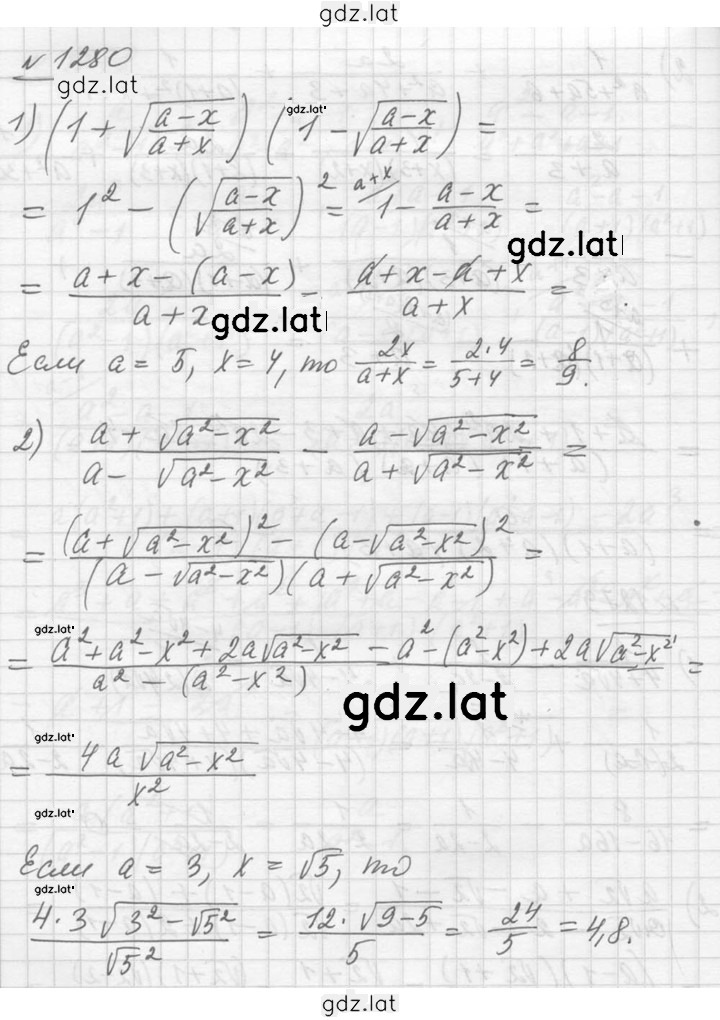 gdz.lat
№ 1280
gdz.lat
1) (1 + √((a-x)/(a+x))) (1 - √((a-x)/(a+x))) =
gdz.lat
= 1² - (√((a-x)/(a+x)))² = 1^(a+x) - (a-x)/(a+x) =
gdz.lat
= (a+x-(a-x))/(a+x) = (a+x-a+x)/(a+x) =
gdz.lat
Если a = 5, x = 4, то 2x/(a+x) = 2·4/(5+4) = 8/9.
2) (a+√(a²-x²))/(a-√(a²-x²)) - (a-√(a²-x²))/(a+√(a²-x²)) =
= ((a+√(a²-x²))² - (a-√(a²-x²))²)/((a-√(a²-x²))(a+√(a²-x²))) =
gdz.lat
= (a²+a²-x²+2a√(a²-x²) - a²-(a²-x²)+2a√(a²-x²))/(a²-(a²-x²)) =
gdz.lat
gdz.lat
= 4a√(a²-x²)/x²
gdz.lat
Если a = 3, x = √5, то
gdz.lat
4·3√(3²-√5²)/√5² = 12·√(9-5)/5 = 24/5 = 4,8.
gdz.lat